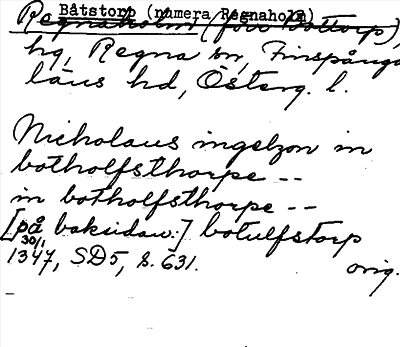 Båtstorp (numera Regnaholm)
Regnaholm (förr Båttorp),
hg, Regna sn, Finspånga
läns hd, Österg. l.
Nicholaus ingelzon in
botholfsthorpe --
in botholfsthorpe --
[på baksidan:] botulfstorp
30/1 1347, SD5, s. 631.
orig.